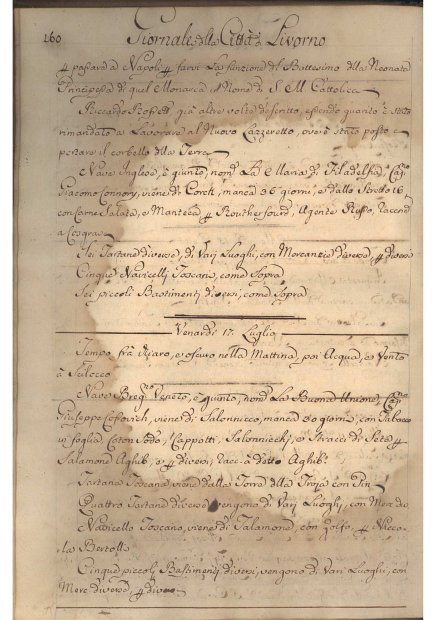 160 Giornale della Città di Livorno
passare a Napoli farvi La funzione del Battesimo della Neonata
Principessa di quel Monarca a Nome di S. M. Cattolica
Riccardo già altre volte descritto, essendo quanto è stato
rimandato a Lavorare al Nuovo Lazzeretto, ove è stato posto a
portare il corbello della Terra
Nave Inglese, è giunto, nomta La Maria di Filadelfia, Capno
Giacomo Connory, viene di Corck, manca 36 giorni, e dallo Stretto 16
con Carne Salata, e Manteca Routherfourd, Agente Russo, raccda
a
Sei Tartane diverse, di Varj Luoghi, con Mercanzie diverse, diversi
Cinque Navicelli Toscani, come Sopra
Sei piccoli Bastimenti diversi, come Sopra
Venerdì 17. Luglio
Tempo frà chiaro, e oscuro nella Mattina, poi Acqua, e Vento
a Scilocco
Nave Veneto, è giunto, nomto La Buona Unione, Capno
Giuseppe viene di Salonnicco, manca 50 giorni, con Tabacco
in foglia Coton Sodo, Cappotti, Salonnicchj, e Stracci di Seta
Salamone Aghib, e diversi, racc. a detto Aghib
Tartana Toscana, viene dalla Torre della Troja con Pin
Quattro Tartane diverse vengono di Varj Luoghi, con Merc. div.
Navicello Toscano, viene di Talamone, con Zolfo, Nicco
la Bertolla
Cinque piccoli Bastimenti diversi, vengono di Vari Luoghi, con
Merc diverse, diversi